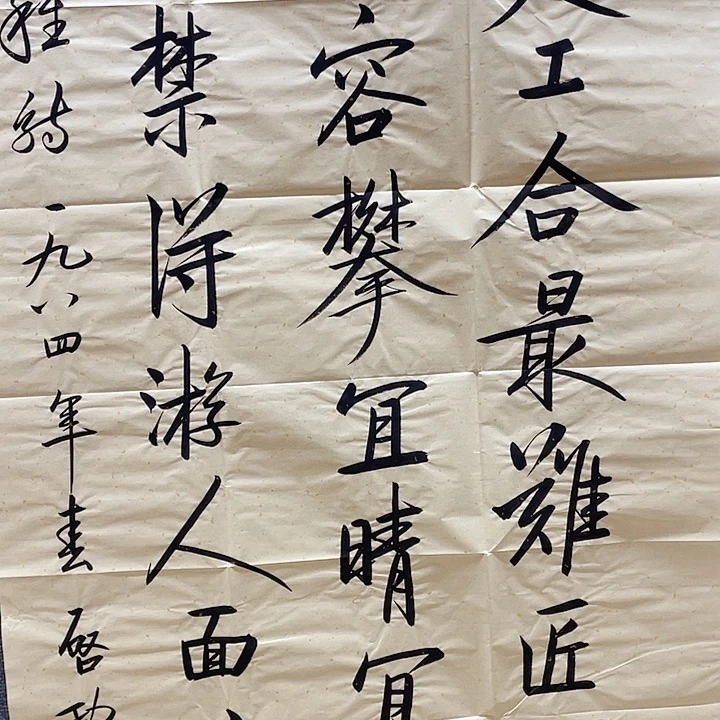 工合最難匠
容攀宜晴宜
禁得游人面
一九八四年春 啓功